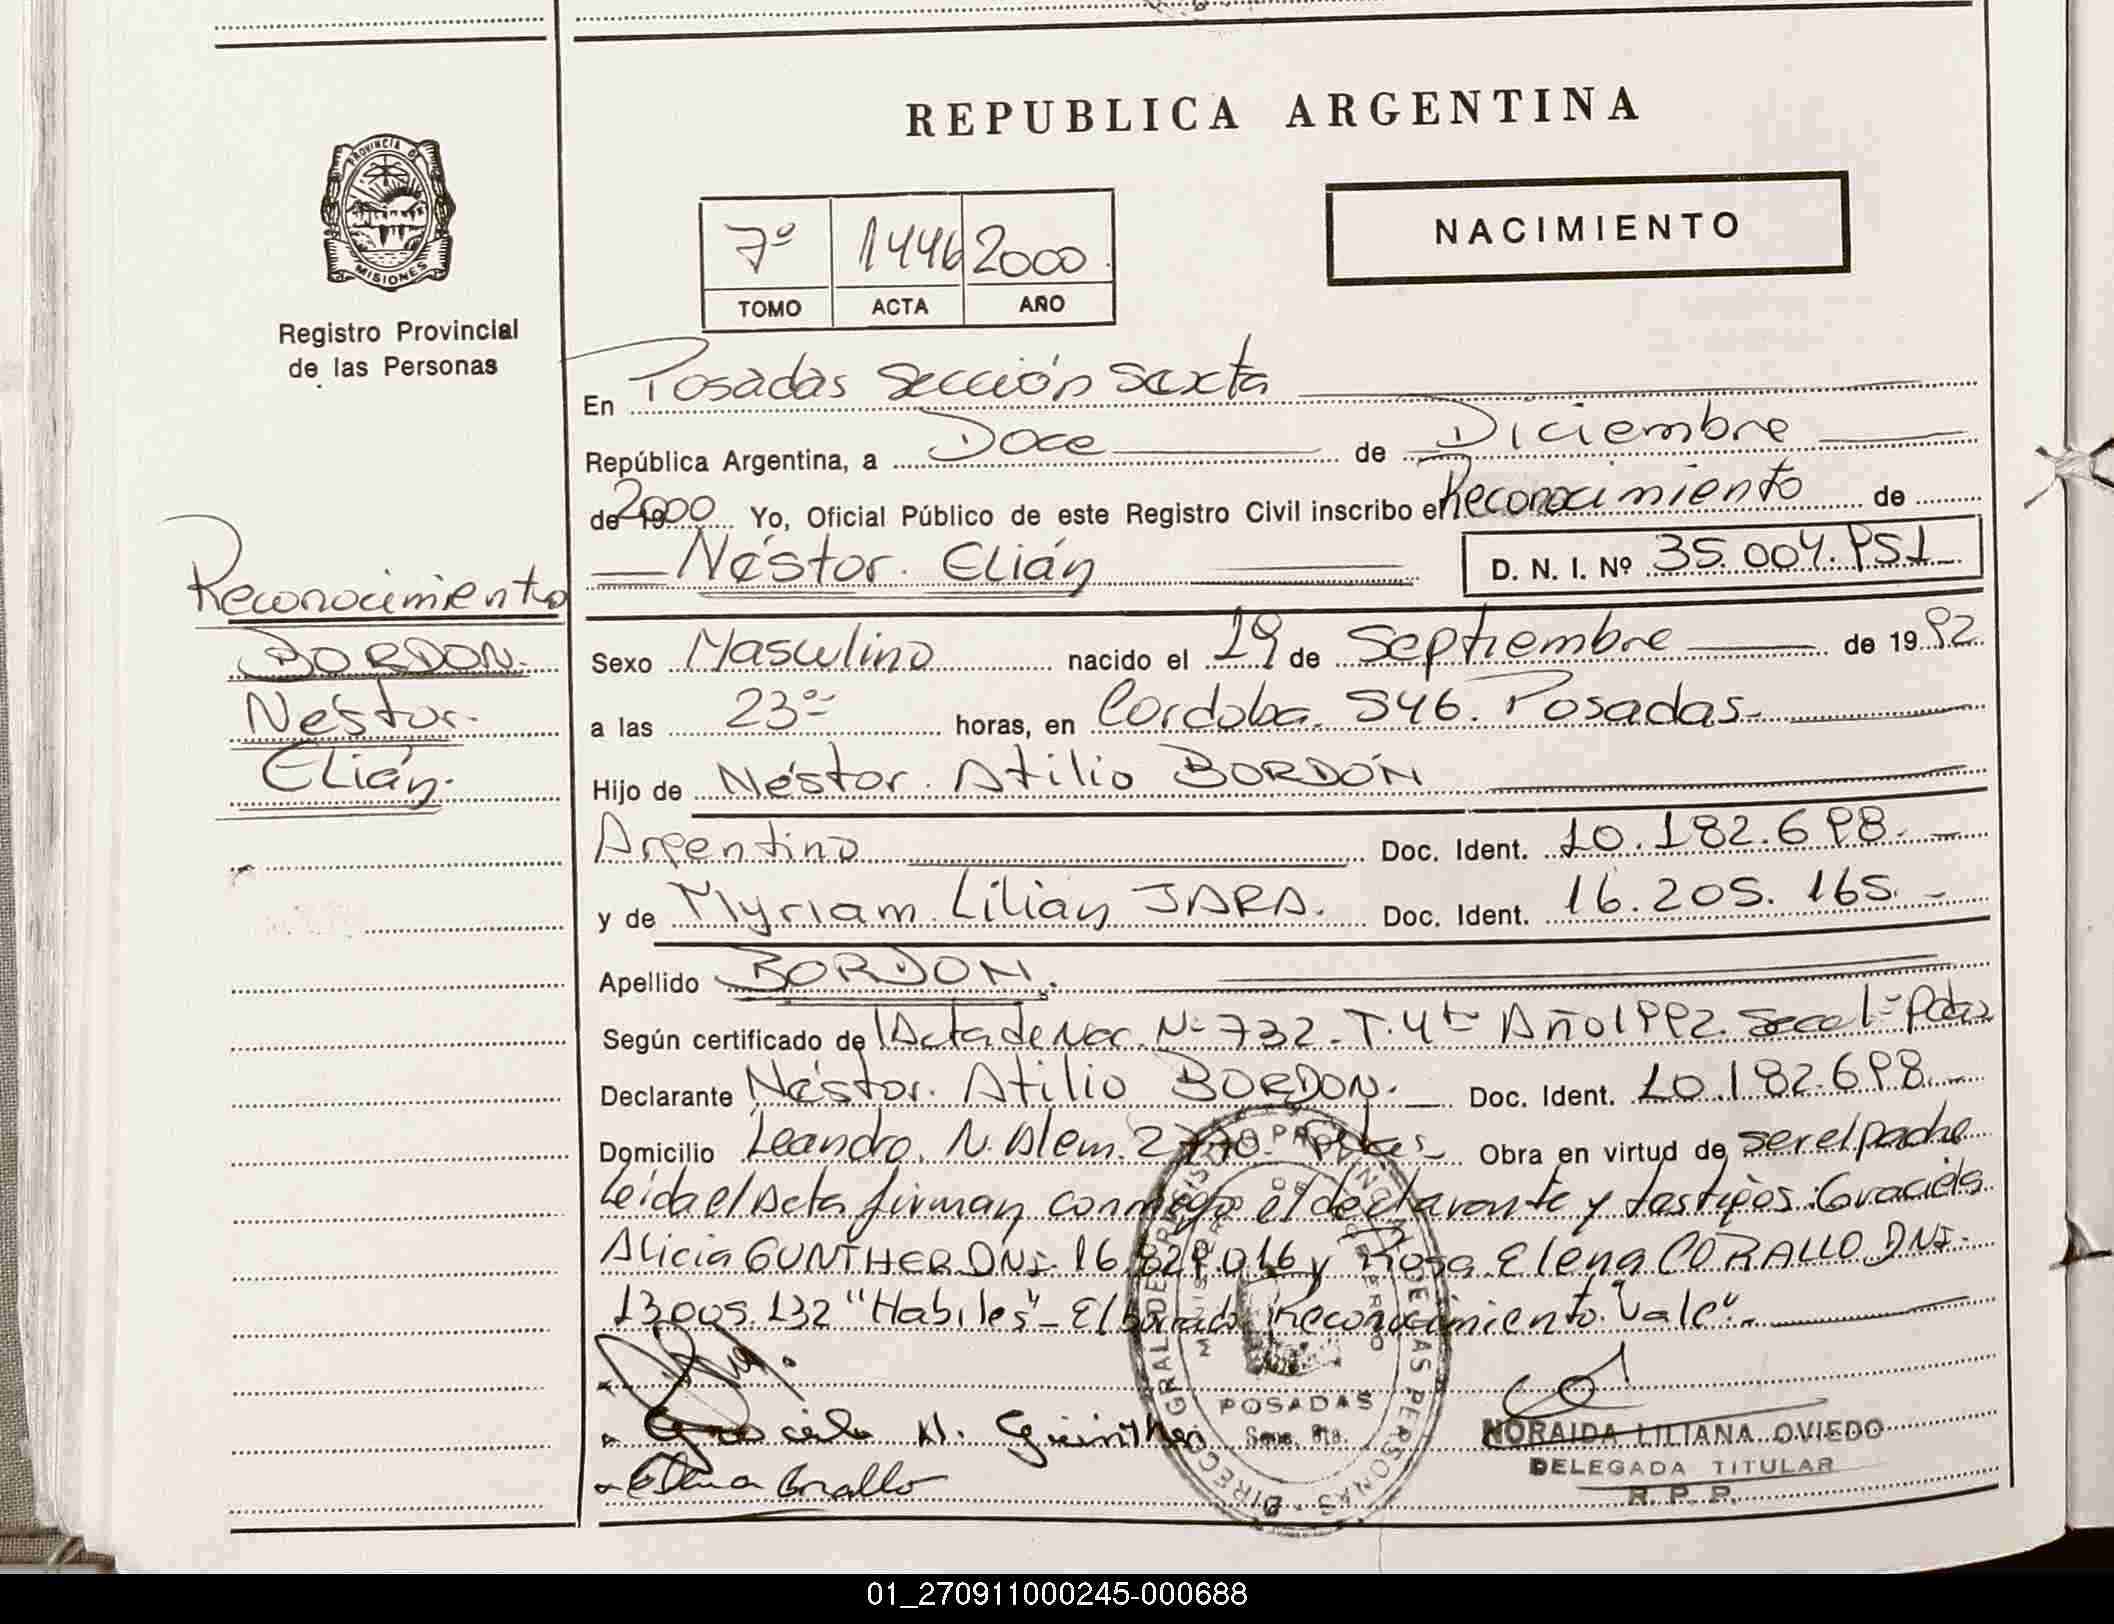 REPUBLICA ARGENTINA
PROVINCIA DE
MISIONES
Registro Provincial
de las Personas
7º 1446 2000
TOMO ACTA AÑO
NACIMIENTO
En Posadas Sección Sexta
República Argentina, a Doce de Diciembre
de 2000 Yo, Oficial Público de este Registro Civil inscribo el Reconocimiento de
Néstor Elián D. N. I. Nº 35.004.951
Reconocimiento
BORDON
Néstor
Elián.
Sexo Masculino nacido el 19 de Septiembre de 1992
a las 23 horas, en Cordoba 546 Posadas
Hijo de Néstor Atilio BORDÓN
Argentino Doc. Ident. 10.182.698
y de Myriam Lilián JARA. Doc. Ident. 16.205.165
Apellido BORDON.
Según certificado de Acta de Nac. Nº 732 T. 4º Año 1992 Secc 1º Pdas
Declarante Néstor Atilio BORDON. Doc. Ident. 10.182.698
Domicilio Leandro N. Alem Obra en virtud de ser el padre
leida el Acta firman conmigo el declarante y testigos: Graciela
Alicia GUNTHER DNI 16.829.016 y Rosa Elena CORALLO DNI
13.005.132 "Habiles" El borrado Reconocimiento "Vale".
Elena Corallo
DIRECC. GRAL DEL REGISTRO PROVINCIAL DE LAS PERSONAS
MINISTERIO DE GOBIERNO
POSADAS
NORAIDA LILIANA OVIEDO
DELEGADA TITULAR
R. P. P.
01_270911000245-000688